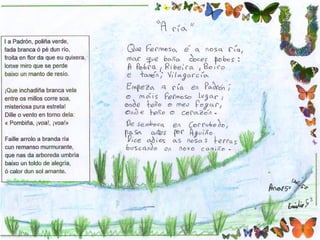 I a Padrón, poliña verde,
fada branca ó pé dun río,
froita en flor da que eu quixera,
lonxe miro que se perde
baixo un manto de resio.
¡Que inchadiña branca vela
entre os millos corre soa,
misteriosa pura estrela!
Dille o vento en torno dela:
« Pombiña, ¡voa!, ¡voa!»
Faille arrolo a branda ría
cun remanso murmurante,
que nas da arboreda umbría
baixo un toldo de alegría,
ó calor dun sol amante.
"A ría"
Que fermosa é a nosa ría,
mar que baña doces pobos:
A Pobra, Ribeira, Boiro
e tamén, Vilagarcía
Empeza a ría en Padrón;
o máis fermoso lugar,
onde teño o meu fogar,
onde teño o corazón.
Desemboca en Corrubedo,
pasa antes por Aguiño
Dice adios as nosas terras
buscando un novo camiño.